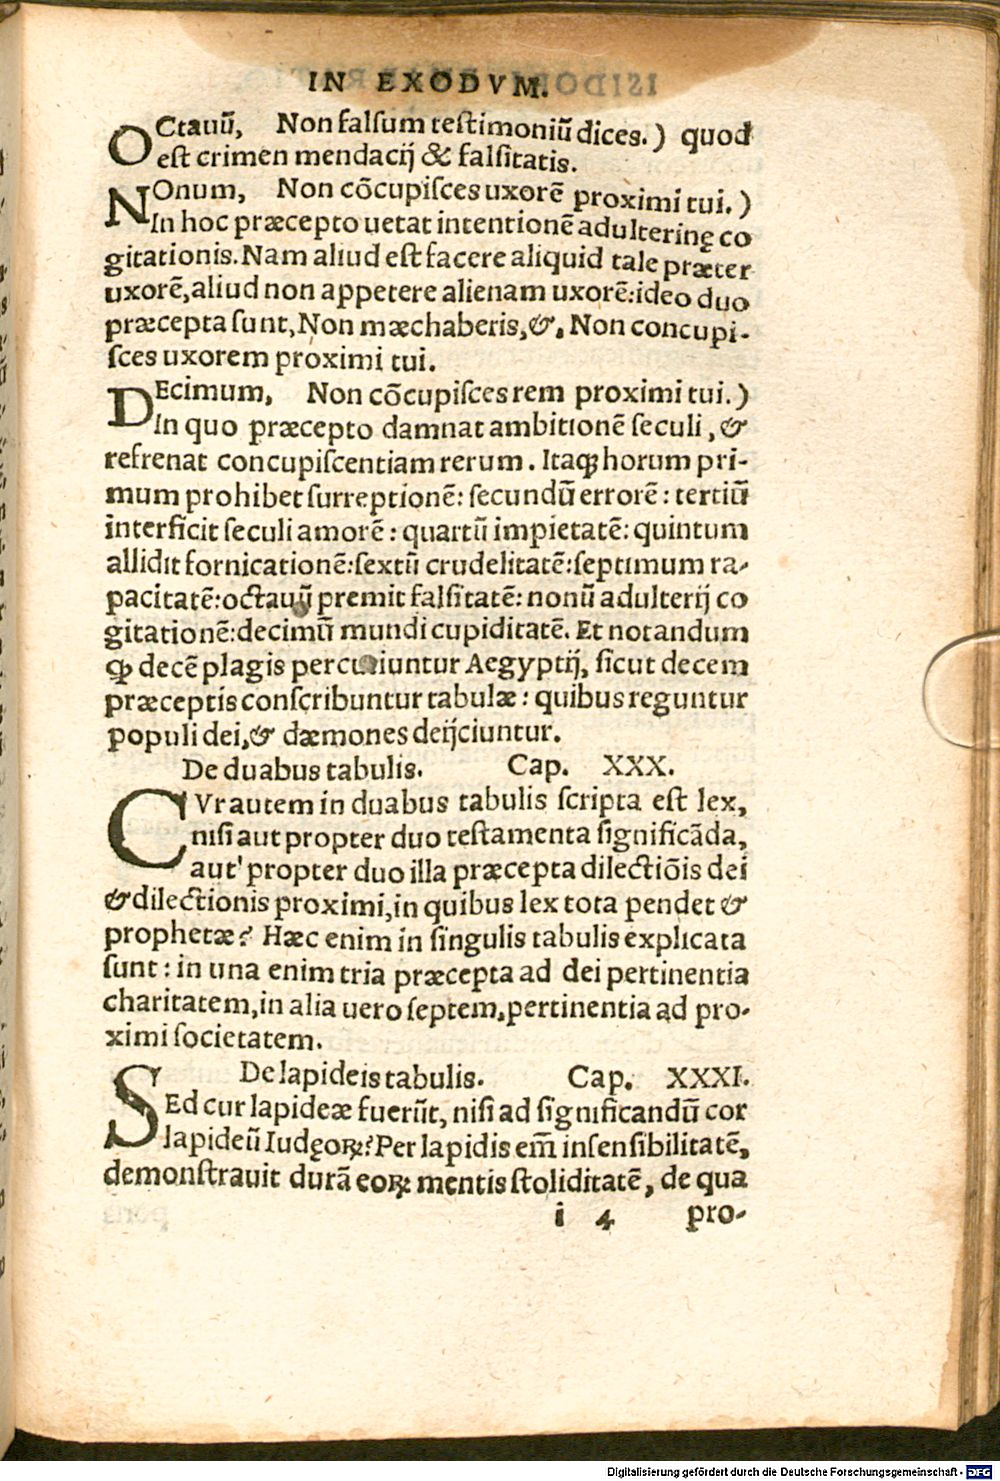 IN EXODVM.
OCtauũ, Non falsum testimoniũ dices.) quod
est crimen mendacij & falsitatis.
NOnum, Non cõcupisces uxorẽ proximi tui.)
In hoc præcepto uetat intentionẽ adulterinę co
gitationis. Nam aliud est facere aliquid tale præter
uxorẽ, aliud non appetere alienam uxorẽ: ideo duo
præcepta sunt, Non mæchaberis, &, Non concupi-
sces uxorem proximi tui.
DEcimum, Non cõcupisces rem proximi tui.)
In quo præcepto damnat ambitionẽ seculi, &
refrenat concupiscentiam rerum. Itaqꝫ horum pri-
mum prohibet surreptionẽ: secundũ errorẽ: tertiũ
interficit seculi amorẽ: quartũ impietatẽ: quintum
allidit fornicationẽ: sextũ crudelitatẽ: septimum ra-
pacitatẽ: octauũ premit falsitatẽ: nonũ adulterij co
gitationẽ: decimũ mundi cupiditatẽ. Et notandum
ꝙ decẽ plagis percutiuntur Aegyptij, sicut decem
præceptis conscribuntur tabulæ: quibus reguntur
populi dei, & dæmones deijciuntur.
De duabus tabulis. Cap. XXX.
CVr autem in duabus tabulis scripta est lex,
nisi aut propter duo testamenta significãda,
aut' propter duo illa præcepta dilectiõis dei
& dilectionis proximi, in quibus lex tota pendet &
prophetæ? Hæc enim in singulis tabulis explicata
sunt: in una enim tria præcepta ad dei pertinentia
charitatem, in alia uero septem, pertinentia ad pro-
ximi societatem.
De lapideis tabulis. Cap. XXXI.
SEd cur lapideæ fuerũt, nisi ad significandũ cor
lapideũ Iudęoꝝ? Per lapidis em̃ insensibilitatẽ,
demonstrauit durã eoꝝ mentis stoliditatẽ, de qua
i 4 pro-
Digitalisierung gefördert durch die Deutsche Forschungsgemeinschaft - DFG